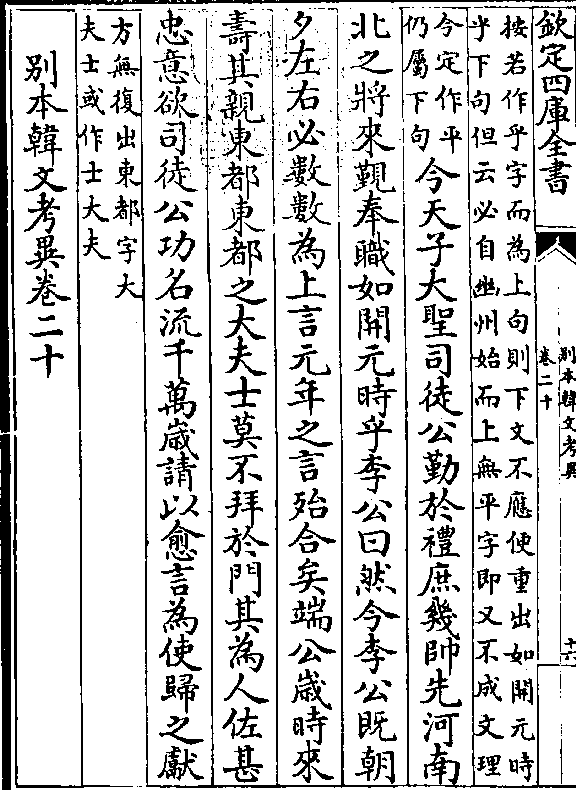 欽定四庫全書
別本韓文考異
卷二十
十六
按若作乎字而為上句則下文不應使重出如開元時
乎下句但云必自幽州始而上無平字即又不成文理
今定作平
仍屬下句
今天子大聖司徒公勤於禮庶幾帥先河南
北之將來覲奉職如開元時乎李公曰然今李公既朝
夕左右必數數為上言元年之言殆合矣端公歲時來
壽其親東都東都之大夫士莫不拜於門其為人佐甚
忠意欲司徒公功名流千萬歲請以愈言為使歸之獻
方無復出東都字大
夫士或作士大夫
別本韓文考異卷二十